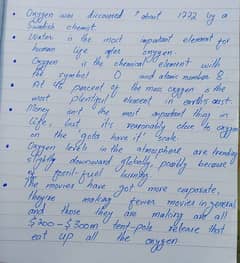 Oxygen was discovered about 1772 by a
Swedish chemist.
Water is the most important element for
human life after oxygen.
Oxygen is the chemical element with
the symbol O and atomic number 8.
At 46 percent of the mass, oxygen is the
most plentiful element in earth's crust.
Money isn't the most important thing in
life, but it's reasonably close to oxygen
on the "gotta have it" scale.
Oxygen levels in the atmosphere are trending
slightly downward globally, possibly because
of fossil-fuel burning.
The movies have got more corporate,
they're making fewer movies in general
and those they are making are all
$200-$300m tent-pole release that
eat up all the oxygen.